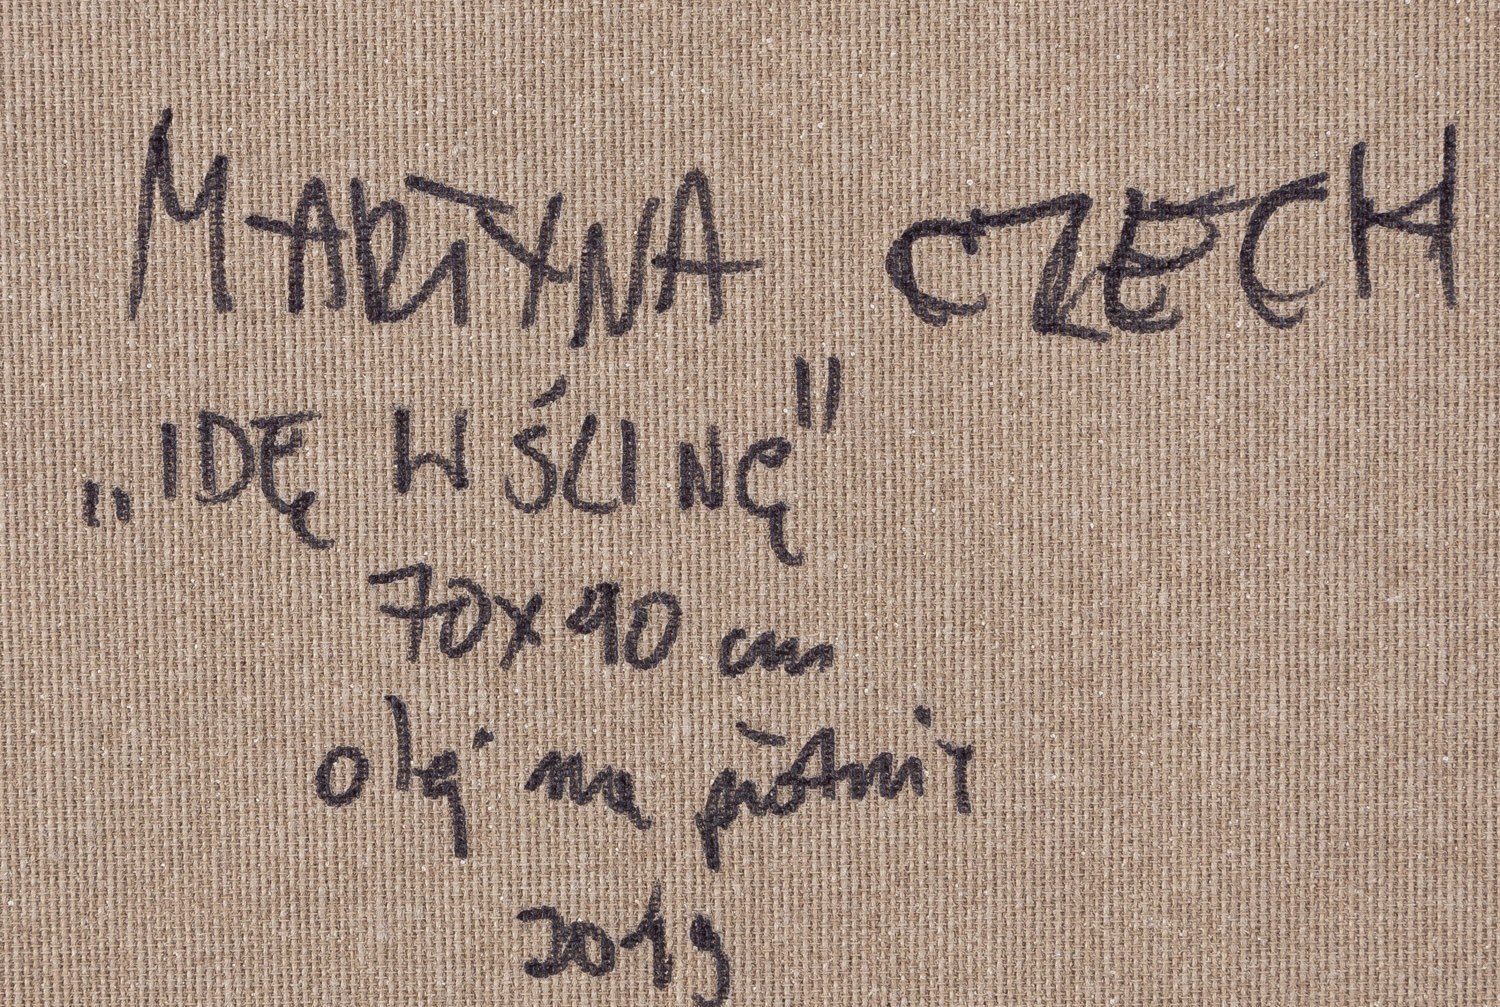 MARTYNA CZECH
„IDĘ W ŚLINĘ"
70x90 cm
olej na płótnie
2019